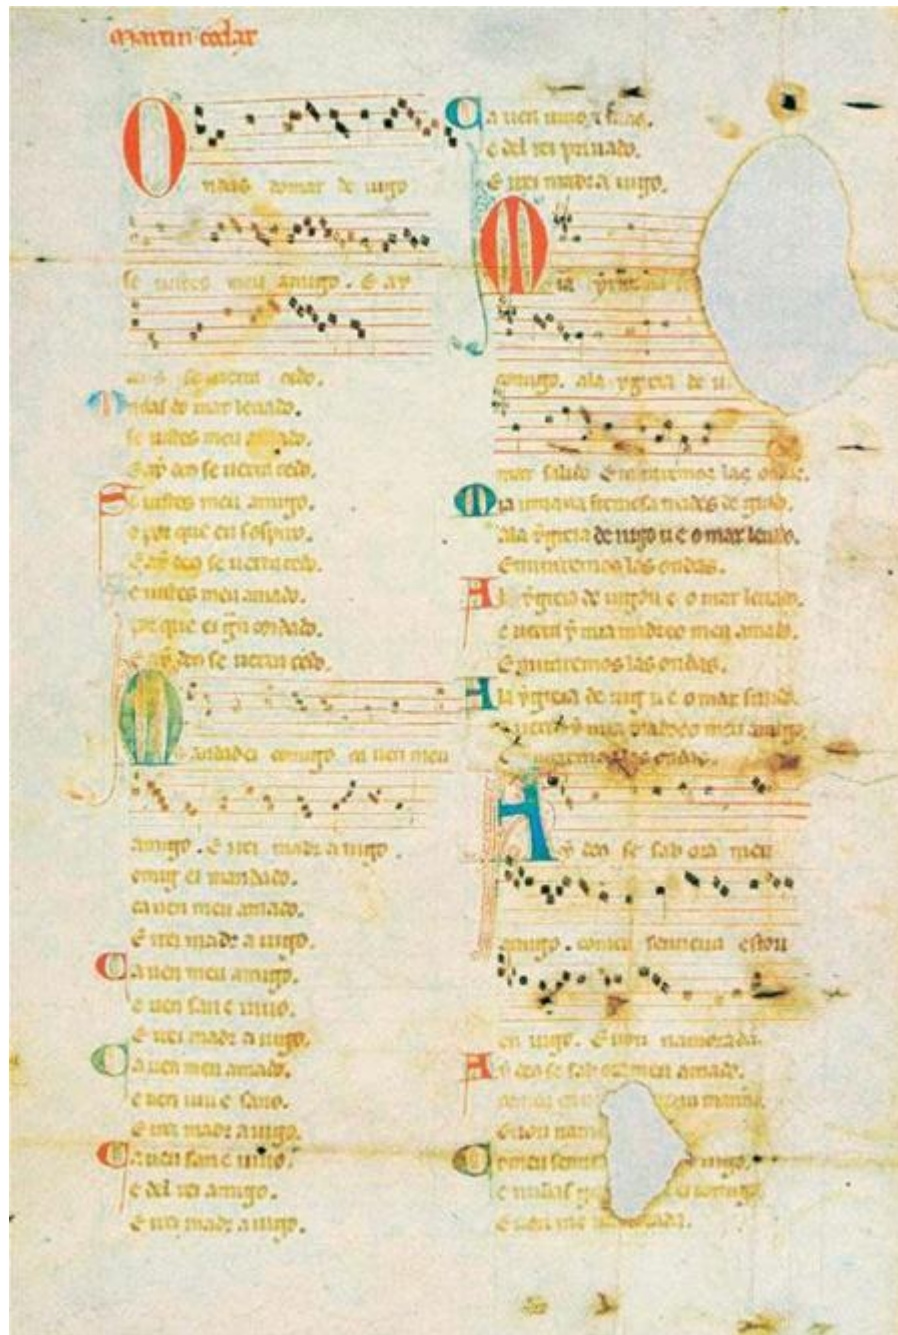 Martin codax
O
ndas do mar de uigo
se uistes meu amigo. E ay
deus se uerra cedo.
ndas do mar leuado.
se uistes meu amado.
E ay deo se uerra cedo.
Se uistes meu amigo.
o por que eu sospiro.
E ay deo se uerra cedo.
e uistes meu amado.
por que ei gñ coidado.
E ay deo se uerra cedo.
M
andadei comigo. ca uen meu
amigo. E irei madr a uigo.
comig ei mandado.
ca uen meu amado.
E irei madr a uigo.
Ca uen meu amigo.
e uen san e uiuo.
E irei madr a uigo.
Ca uen meu amado.
e uen uiu e sano.
E irei madr a uigo.
Ca uen san e uiuo.
e del rei amigo.
E irei madr a uigo.
Ca uen uiuo e sano.
e del rei priuado.
E irei madr a uigo.
M
ia yrmana
comigo. ala ygreia de u
mar salido E miraremos las ondas.
Mia irmana fremosa treides de grado.
ala ygreia de uigo u e o mar leuado.
E miraremos las ondas.
A la ygreia de uigo u e o mar leuado.
e uerra y mia madre o meu amado.
E miraremos las ondas.
A la ygreia de uig u e o mar salido.
e uerra y mia madre o meu amigo
E miraremos las ondas.
A
y deo se sab ora meu
amigo. comeu senneira estou
en uigo. E uou namorada.
Ay deo se sab ora meu amado.
E uou nam
Comeu senn uigo.
E uou namorada.